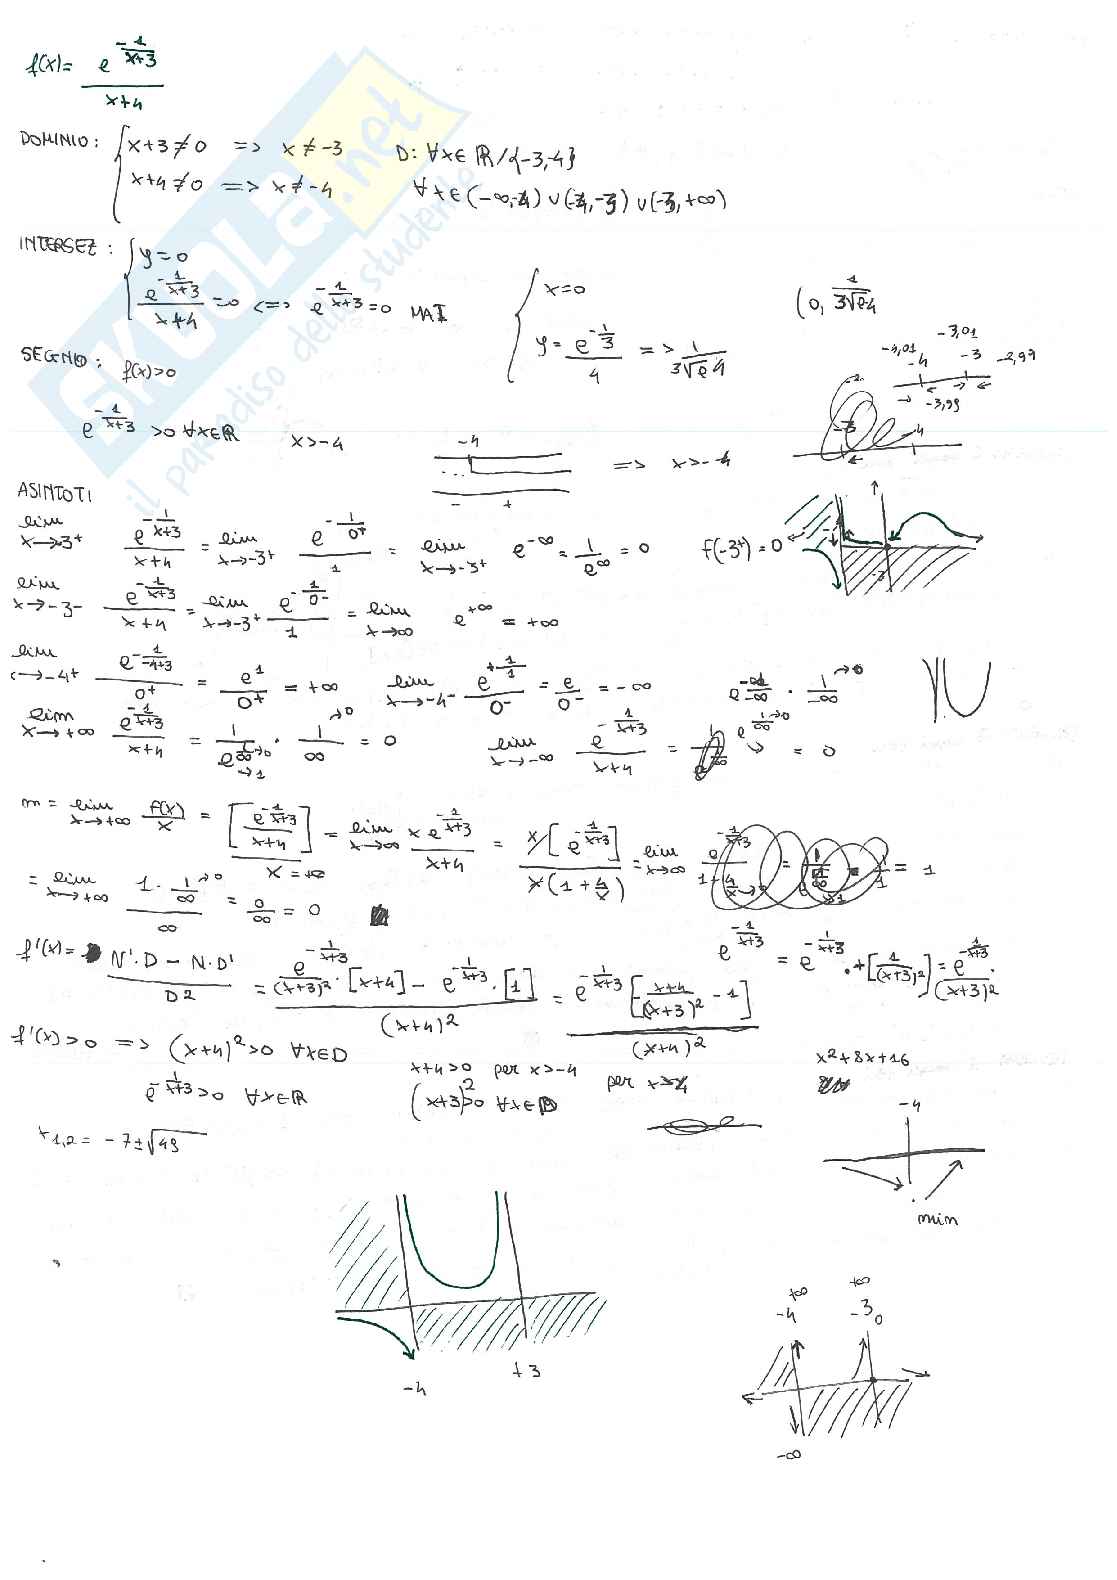 f(x)= e^(-1/(x+3)) / (x+4)
DOMINIO: { x+3≠0 => x≠-3 D: ∀x∈ℝ/{-3,4}
x+4≠0 => x≠-4 ∀x∈(-∞,-4)∪(-4,-3)∪(-3,+∞)
INTERSEZ: { y=0
e^(-1/(x+3)) / (x+4) =0 <=> e^(-1/(x+3))=0 MAI
{ x=0
y= e^(-1/3) / 4 => 1/(3√e 4)
(0, 1/(3√e4)
-4,01 -4 -3,01 -3 -2,99
-3,99
-3 -4
SEGNO: f(x)>0
e^(-1/(x+3)) >0 ∀x∈ℝ x>-4 -4 => x>-4
- +
ASINTOTI
lim x→-3+ e^(-1/(x+3)) / (x+4) = lim x→-3+ e^(-1/0+) / 1 = lim x→-3+ e^-∞ = 1/e^∞ = 0 f(-3+)=0
-3
lim x→-3- e^(-1/(x+3)) / (x+4) = lim x→-3+ e^(-1/0-) / 1 = lim x→∞ e^+∞ = +∞
lim x→-4+ e^(-1/(-4+3)) / 0+ = e^1/0+ = +∞ lim x→-4- e^(+1/1) / 0- = e/0- = -∞ · 1/-∞ →0
lim x→+∞ e^(-1/(x+3)) / (x+4) = 1/e^(1/∞→0) →1 · 1/∞ →0 = 0 lim x→-∞ e^(-1/(x+3)) / (x+4) = e^(1/∞→0) = 0
m = lim x→+∞ f(x)/x = [e^(-1/(x+3)) / (x+4)] / x = lim x→∞ x e^(-1/(x+3)) / (x+4) = x[e^(-1/(x+3))] / x(1+4/x) = lim x→∞ e^(-1/(x+3)) / (1+4/x) = 1/1 = 1
= lim x→+∞ 1·1/∞ →0 / ∞ = 0/∞ = 0
f'(x)= N'·D - N·D' / D² = e^(-1/(x+3)) / (x+3)² ·[x+4] - e^(-1/(x+3))·[1] / (x+4)² = e^(-1/(x+3)) [(x+4)/(x+3)² -1] / (x+4)²
e^(-1/(x+3)) = e^(-1/(x+3)) · +[1/(x+3)²] = e^(-1/(x+3)) / (x+3)² ·
f'(x)>0 => (x+4)²>0 ∀x∈D x+4>0 per x>-4 x²+8x+16
e^(-1/(x+3))>0 ∀x∈ℝ (x+3)²>0 ∀x∈D per x>-4
x1,2 = -7±√49
-4
min
-4 +3
+∞ +∞
-4 -3 0
-∞